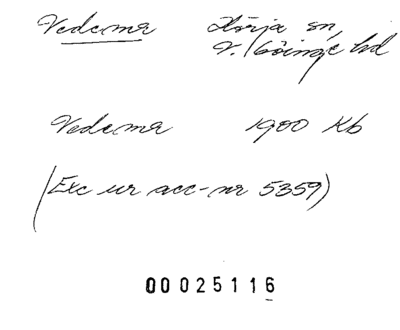 Vedema Röija sn,
V. Göinge hd
Vedema 1900 Kb
(Exc ur acc-nr 5359)
00025116